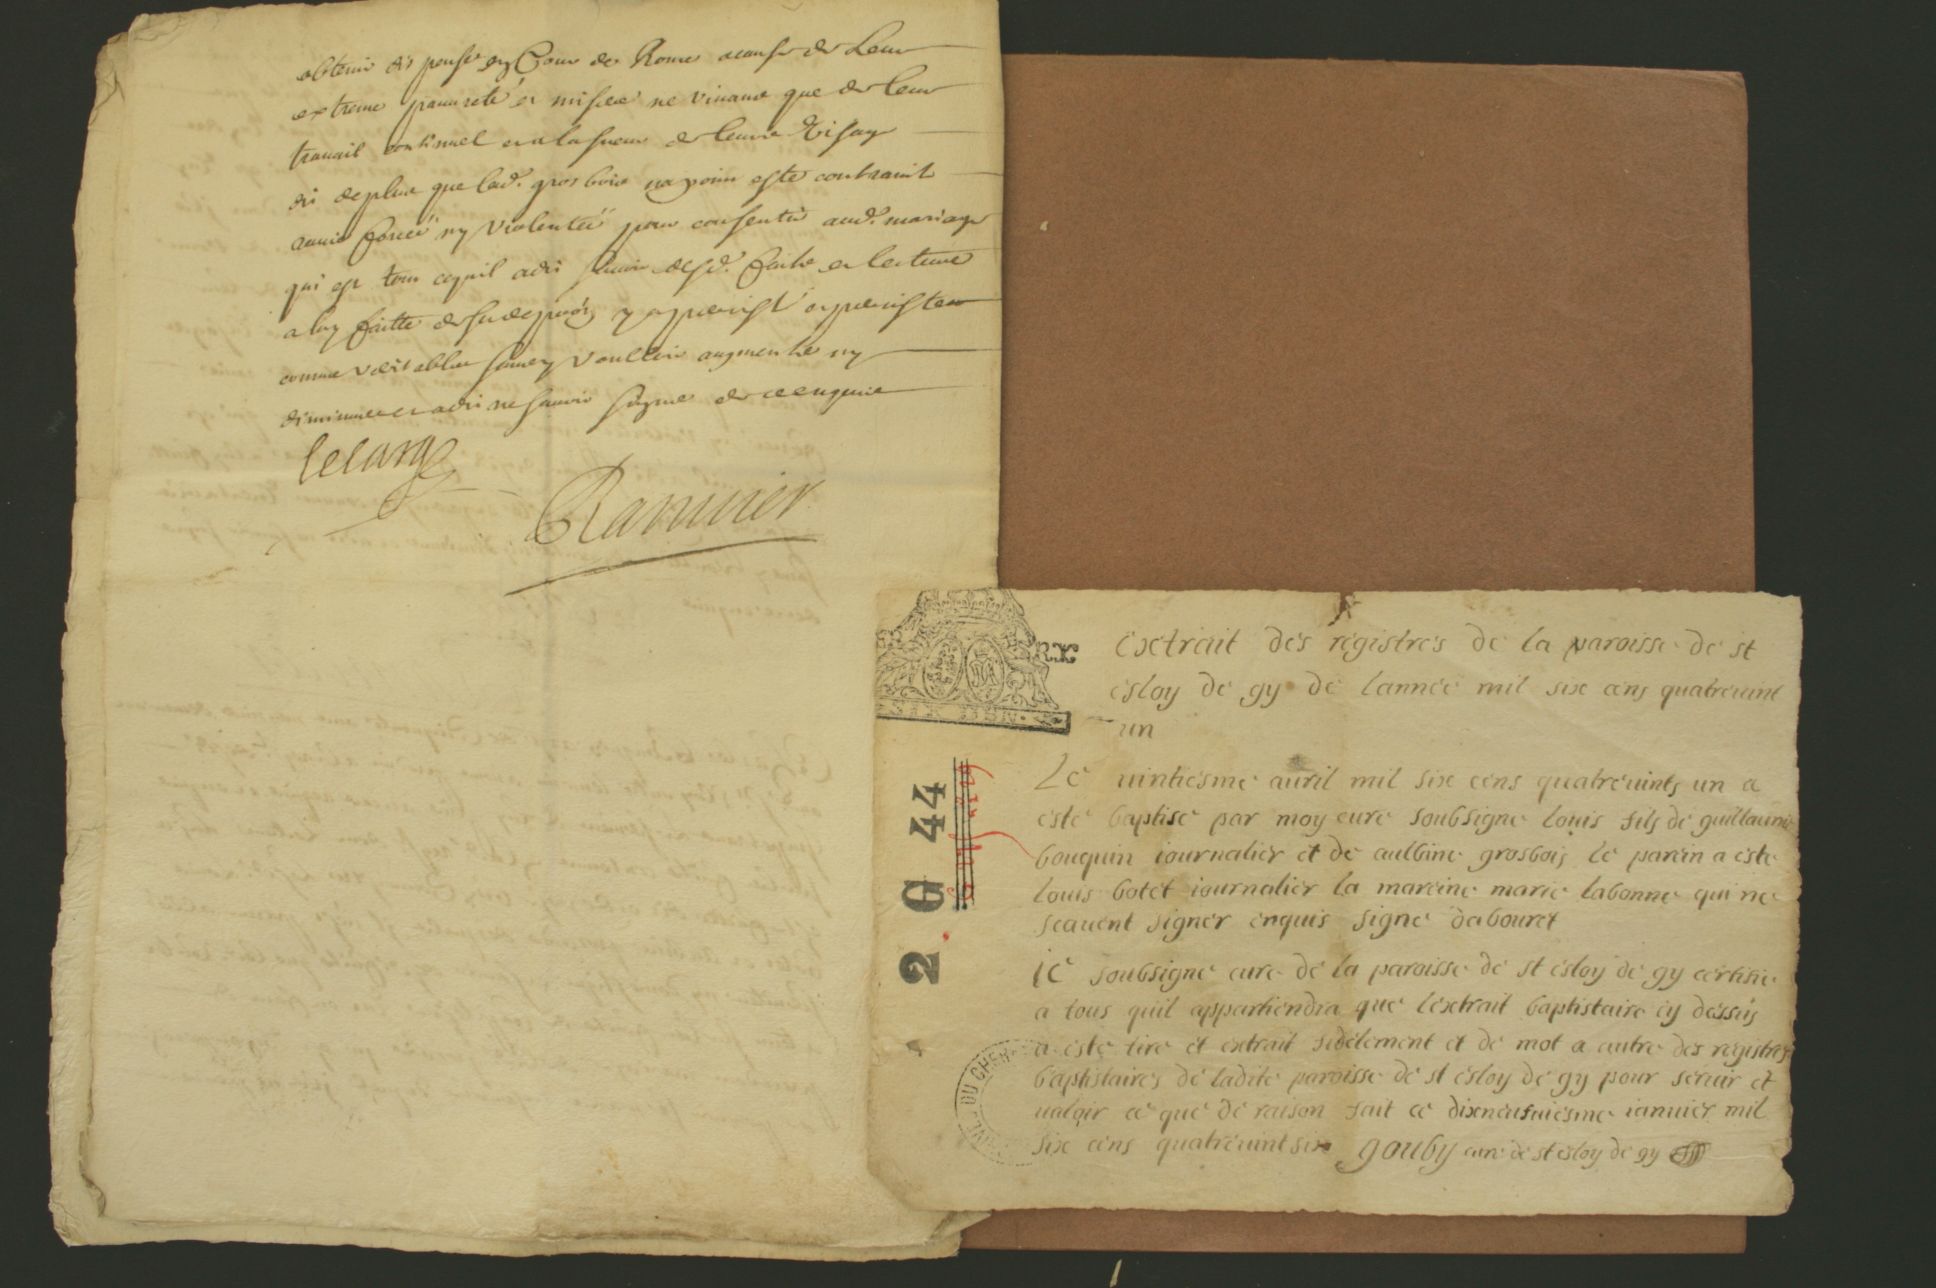 obtenir dispense en Cour de Rome a cause de Leur
extreme pauureté et misere ne viuant que de leur
trauail continuel et a la sueur de leurs visage
dit de plus que lad. grosbois na point esté contrainte
rauie forcéé ny violentéé pour consentir aud. mariage
qui est tout ce quil a dit scauoir desd. faits et lecture
a luy faitte de sa depoōn y a persisté et persiste
comme veritable sans y vouloir augmenter ny
diminuer et a dit ne scauoir signer de ce enquis
lelarge
Ramier
extrait des registres de la paroisse de st
esloy de gy de lannee mil six cens quatreuint
un
Le uintiesme auril mil six cens quatreuints un a
este baptise par moy cure soubsigne louis fils de guillaume
bouquin iournalier et de aulbine grosbois le parein a este
louis botet iournalier la mareine marie labonne qui ne
scauent signer enquis signe dabouret
ie soubsigne cure de la paroisse de st esloy de gy certifie
a tous quil appartiendra que lextrait baptistaire cy dessus
a este tire et extrait fidelement et de mot a autre des registres
baptistaires de ladite paroisse de st esloy de gy pour seruir et
ualoir ce que de raison fait ce dixneufuiesme ianuier mil
six cens quatreuint six gouby cure de st esloy de gy
2 G 44
DU CHER